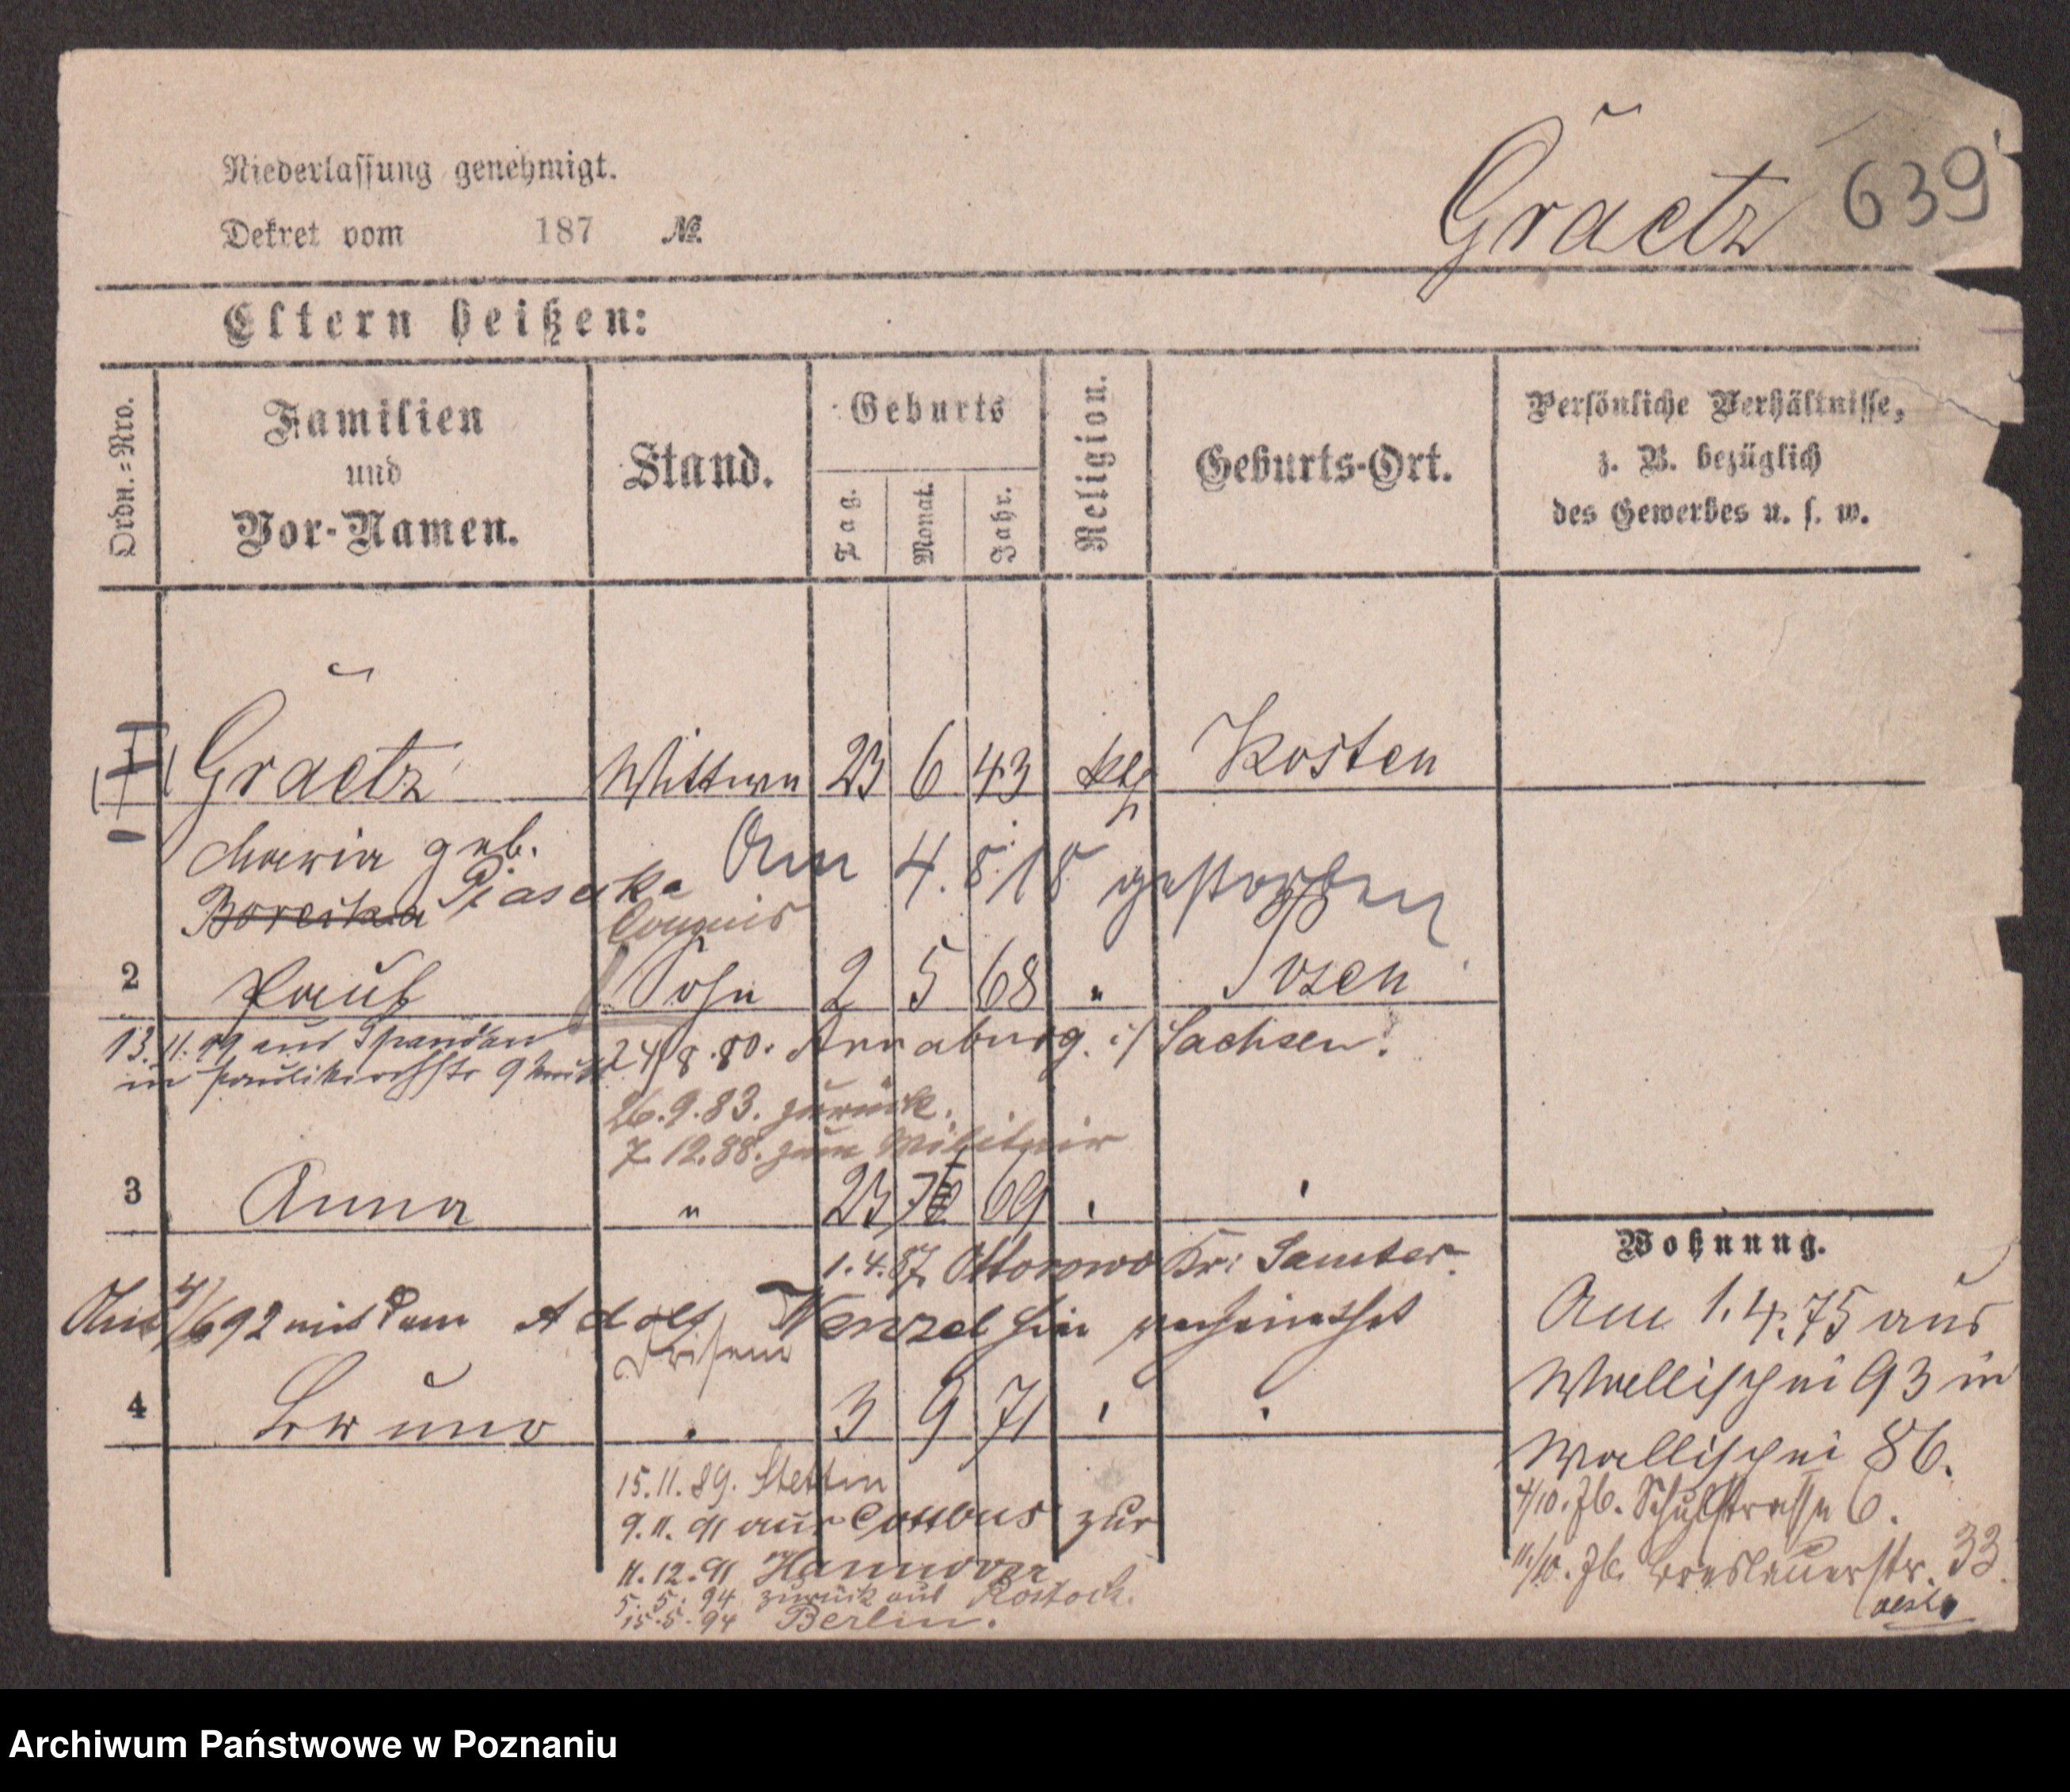 Niederlassung genehmigt.
Dekret vom 187 №.
Graetz 639
Eltern heißen:
Ordn.=Nro.
Familien und Vor-Namen.
Stand.
Geburts
Tag.
Monat.
Jahr.
Religion.
Geburts-Ort.
Persönliche Verhältnisse,
z. B. bezüglich
des Gewerbes u. s. w.
Graetz Wittwe 23 6 43 kth Kosten
Maria geb.
Piasecka
Am 4. 8. 18 gestorben
Commis
2 Paul Sohn 2 5 68 " Posen
13. 11. 99 aus Spandau
in Paulikirchstr 9
24/8. 80. Annaburg i/Sachsen.
26. 9. 83. zurück.
7. 12. 88. zum Militair
3 Anna " 23 69
1. 4. 87 Ottorowo Kr: Samter.
4/6 92 mit dem Adolf Wenzel hier verheirathet
4 Bruno 3 9 71
15. 11. 89. Stettin
9. 11. 91 aus Cottbus zur
11. 12. 91 Hannover
5. 5. 94 zurück aus Rostock.
15. 5. 94 Berlin.
Wohnung.
Am 1. 4. 75 aus
Wallischei 93 in
Wallischei 86.
4/10. 76. Schulstrasse 6.
11/10. 76. Breslauerstr. 33.
Archiwum Państwowe w Poznaniu